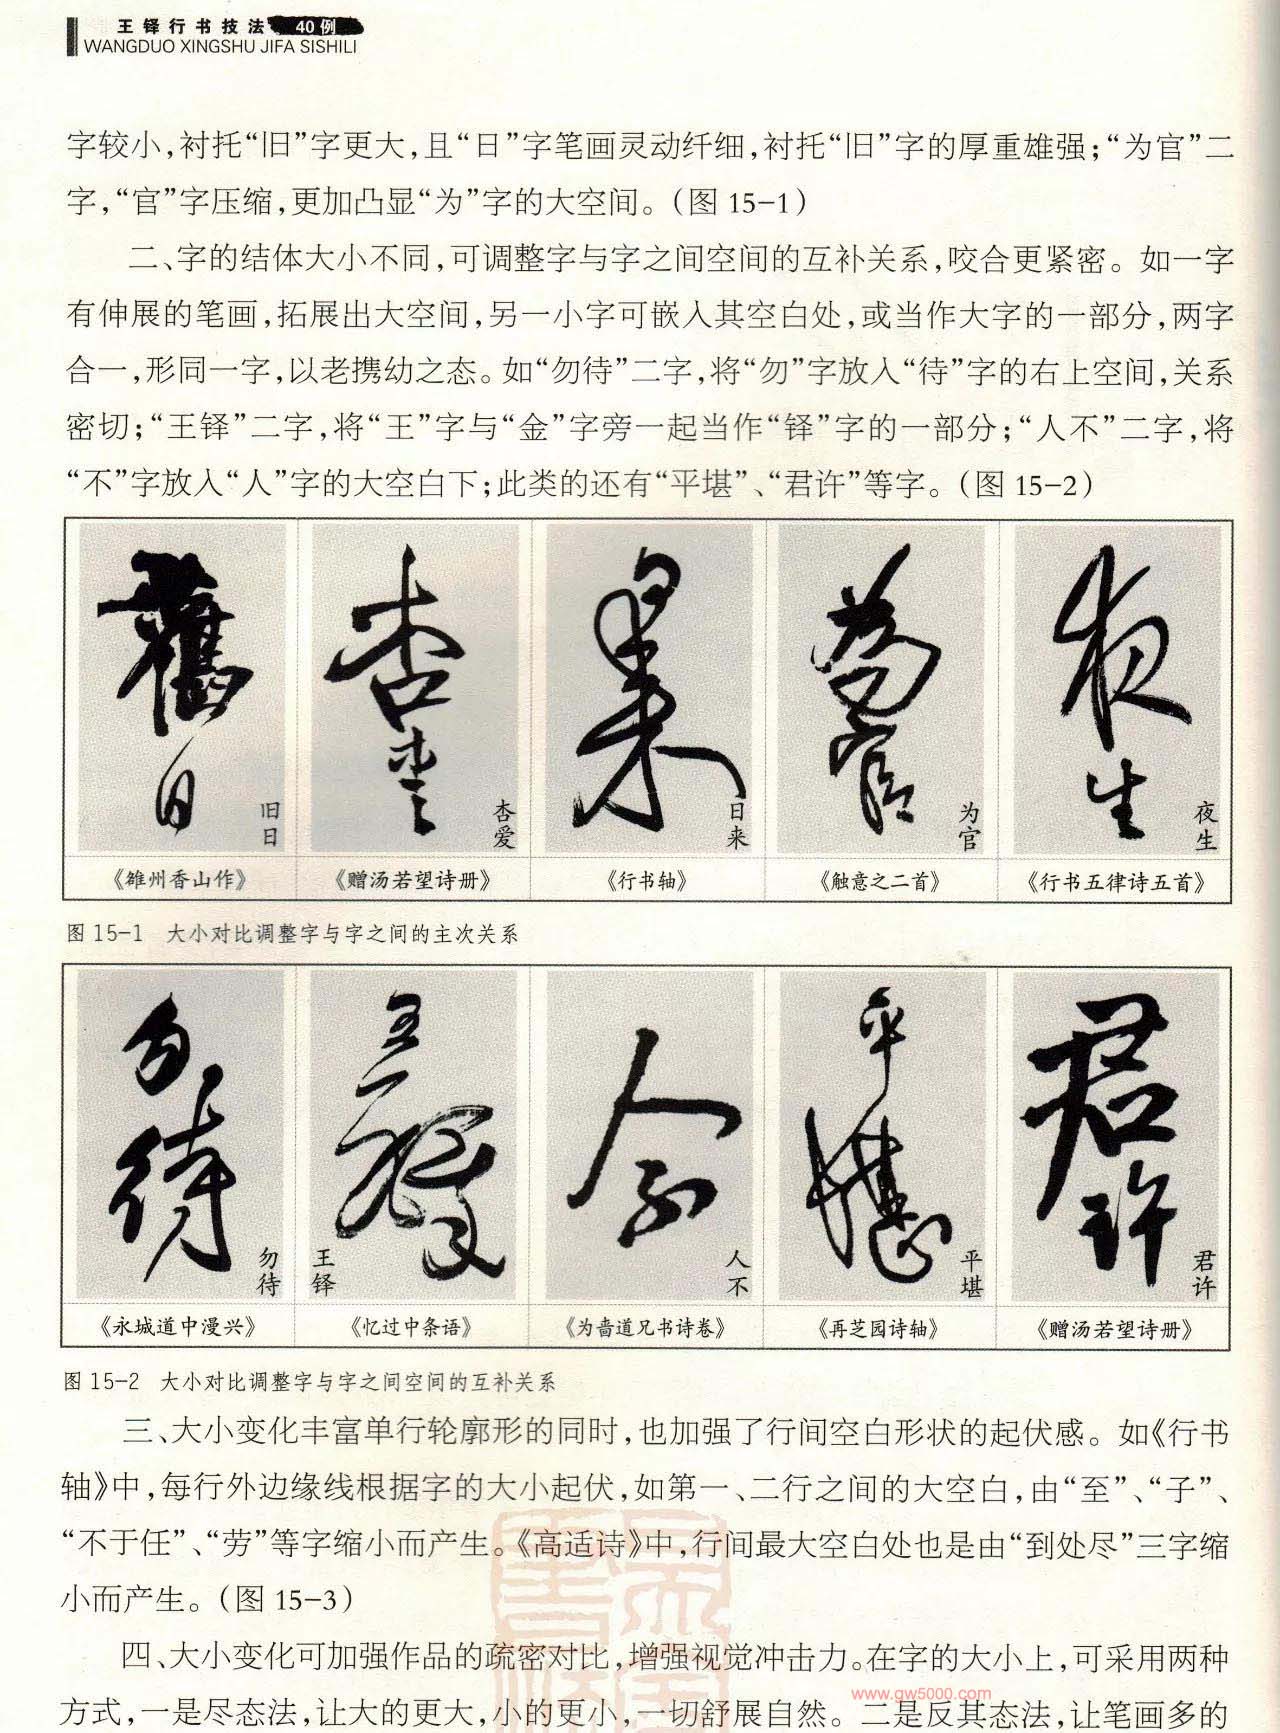 王铎行书技法 40例
WANGDUO XINGSHU JIFA SISHILI
字较小，衬托“旧”字更大，且“日”字笔画灵动纤细，衬托“旧”字的厚重雄强；“为官”二
字，“官”字压缩，更加凸显“为”字的大空间。（图 15-1）
二、字的结体大小不同，可调整字与字之间空间的互补关系，咬合更紧密。如一字
有伸展的笔画，拓展出大空间，另一小字可嵌入其空白处，或当作大字的一部分，两字
合一，形同一字，以老携幼之态。如“勿待”二字，将“勿”字放入“待”字的右上空间，关系
密切；“王铎”二字，将“王”字与“金”字旁一起当作“铎”字的一部分；“人不”二字，将
“不”字放入“人”字的大空白下；此类的还有“平堪”、“君许”等字。（图 15-2）
舊日
旧日
杏愛
杏爱
日来
日来
為官
为官
夜生
夜生
《雒州香山作》
《赠汤若望诗册》
《行书轴》
《触意之二首》
《行书五律诗五首》
图 15-1 大小对比调整字与字之间的主次关系
勿待
勿待
王鐸
王铎
人不
人不
平堪
平堪
君許
君许
《永城道中漫兴》
《忆过中条语》
《为啬道兄书诗卷》
《再芝园诗轴》
《赠汤若望诗册》
图 15-2 大小对比调整字与字之间空间的互补关系
三、大小变化丰富单行轮廓形的同时，也加强了行间空白形状的起伏感。如《行书
轴》中，每行外边缘线根据字的大小起伏，如第一、二行之间的大空白，由“至”、“子”、
“不于任”、“劳”等字缩小而产生。《高适诗》中，行间最大空白处也是由“到处尽”三字缩
小而产生。（图 15-3）
四、大小变化可加强作品的疏密对比，增强视觉冲击力。在字的大小上，可采用两种
www.gw5000.com
方式，一是尽态法，让大的更大，小的更小，一切舒展自然。二是反其态法，让笔画多的